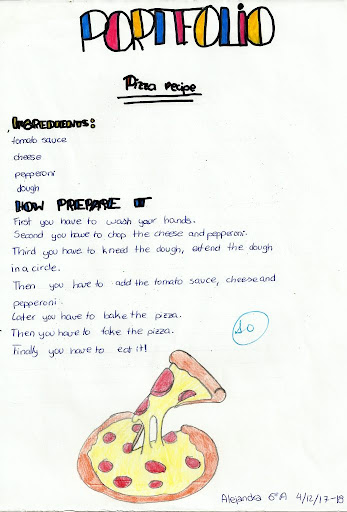 PORTFOLIO
Pizza recipe
INGREDIENTS:
tomato sauce
cheese
pepperoni
dough
HOW PREPARE IT
First you have to wash your hands.
Second you have to chop the cheese and pepperoni.
Third you have to kneed the dough, extend the dough
in a circle.
Then you have to add the tomato sauce, cheese and
pepperoni.
Later you have to bake the pizza.
Then you have to take the pizza.
Finally you have to eat it!
10
Alejandra 6ºA 4/12/17-18